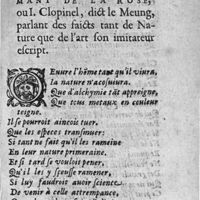 MANT DE LA ROSE,
ou I. Clopinel, dict le Meung,
parlant des faicts tant de Na-
ture que de l'art son imitateur
escript.
Oeuure l'hõme tant qu'il viura,
La nature n'acosuiura.
Que d'alchymie tãt appreigne,
Que tous metaux en couleur
teigne.
Il se pourroit aincois tuer.
Que les especes transmuer:
Si tant ne fait qu'il les rameine
En leur nature primeraine.
Et si tard se vouloit pener,
Qu'il les y sceust ramener,
Si luy faudroit auoir science
De venir à celle attrempance,